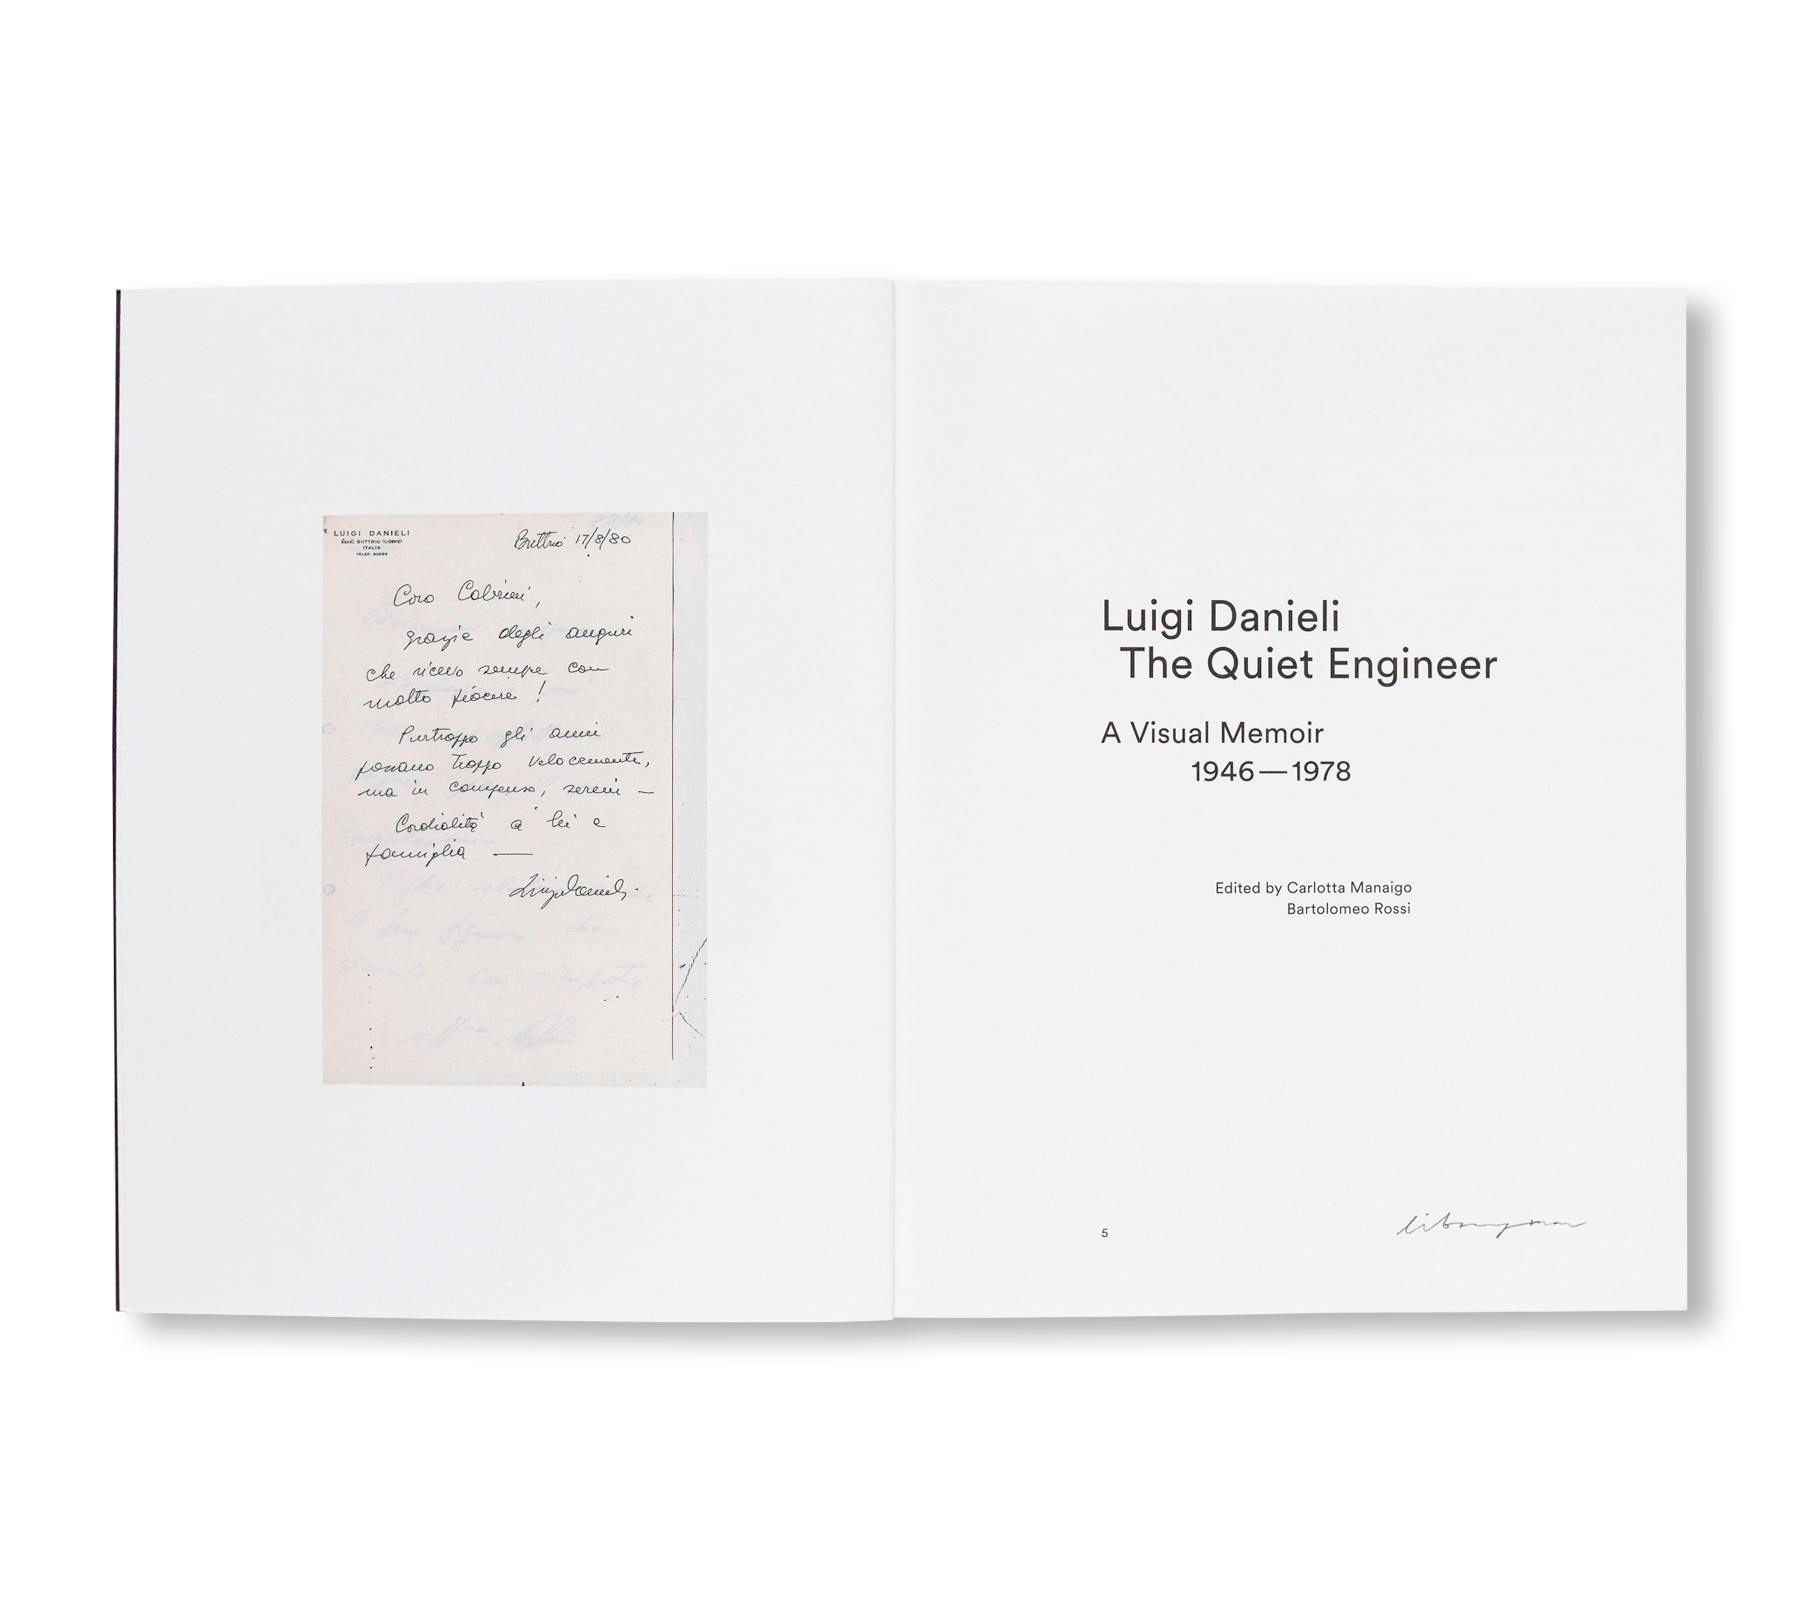 LUIGI DANIELI
33042 BUTTRIO (UDINE)
ITALIA
Buttrio 17/8/80
Caro Cabrini,
grazie degli auguri
che ricevo sempre con
molto piacere!
Purtroppo gli anni
passano troppo velocemente,
ma in compenso, sereni —
Cordialità a lei e
famiglia —
Luigi Danieli
Luigi Danieli
The Quiet Engineer
A Visual Memoir
1946—1978
Edited by Carlotta Manaigo
Bartolomeo Rossi
5
libraryman